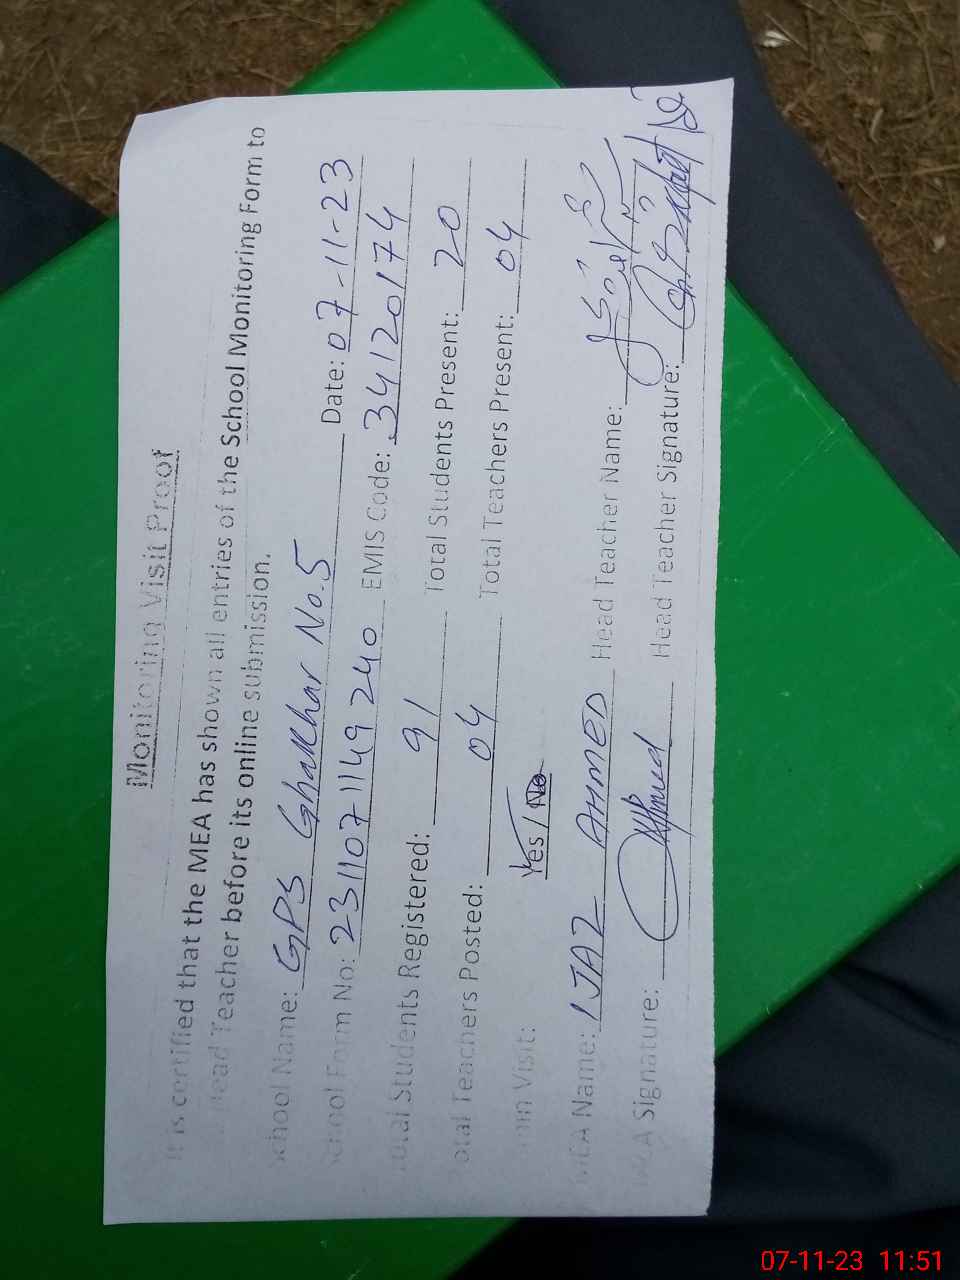 Monitoring Visit Proof
It is certified that the MEA has shown all entries of the School Monitoring Form to
Head Teacher before its online submission.
School Name: GPS Ghakhar No.5 Date: 07-11-23
School Form No: 2311071149240 EMIS Code: 34120174
Total Students Registered: 91 Total Students Present: 20
Total Teachers Posted: 04 Total Teachers Present: 04
Join Visit: Yes / No
MEA Name: IJAZ AHMED Head Teacher Name:
MEA Signature: Head Teacher Signature:
07-11-23 11:51